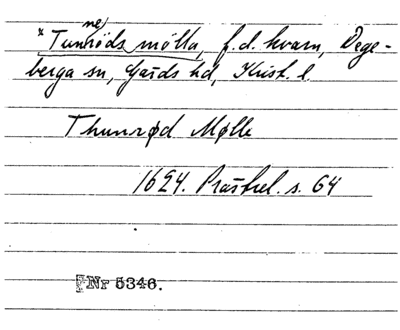 * Tunneröds mölla, f.d. kvarn, Dege-
berga sn, Gärds hd, Krist. l.
Thunrød Mølle
1624. Prästrel. s. 64
Nr 5346.